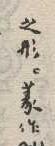 之形。篆作